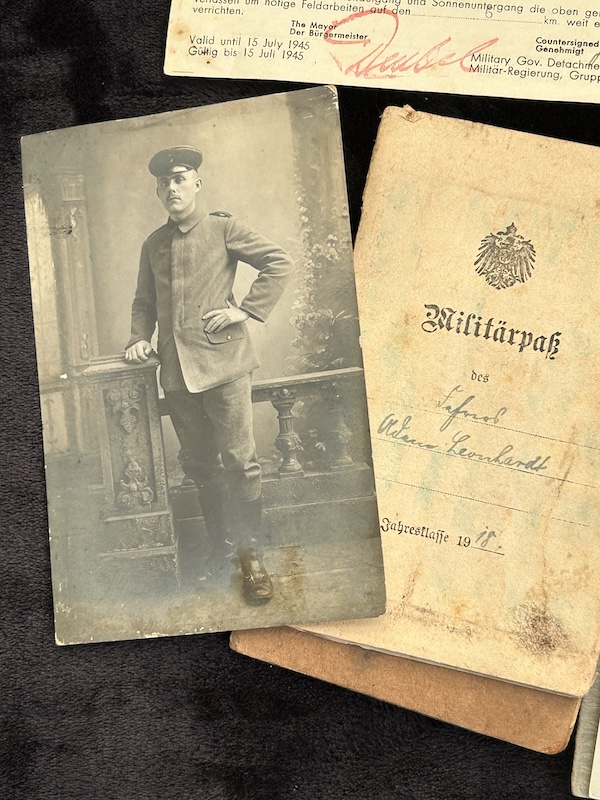 verlassen um nötige Feldarbeiten auf den 6 km. weit e
verrichten.
The Mayor
Der Bürgermeister
Countersigned
Genehmigt
Valid until 15 July 1945
Gültig bis 15 Juli 1945
Military Gov. Detachme
Militär-Regierung, Grupp
Militärpaß
des
Adam Leonhardt
Jahresklasse 1918.